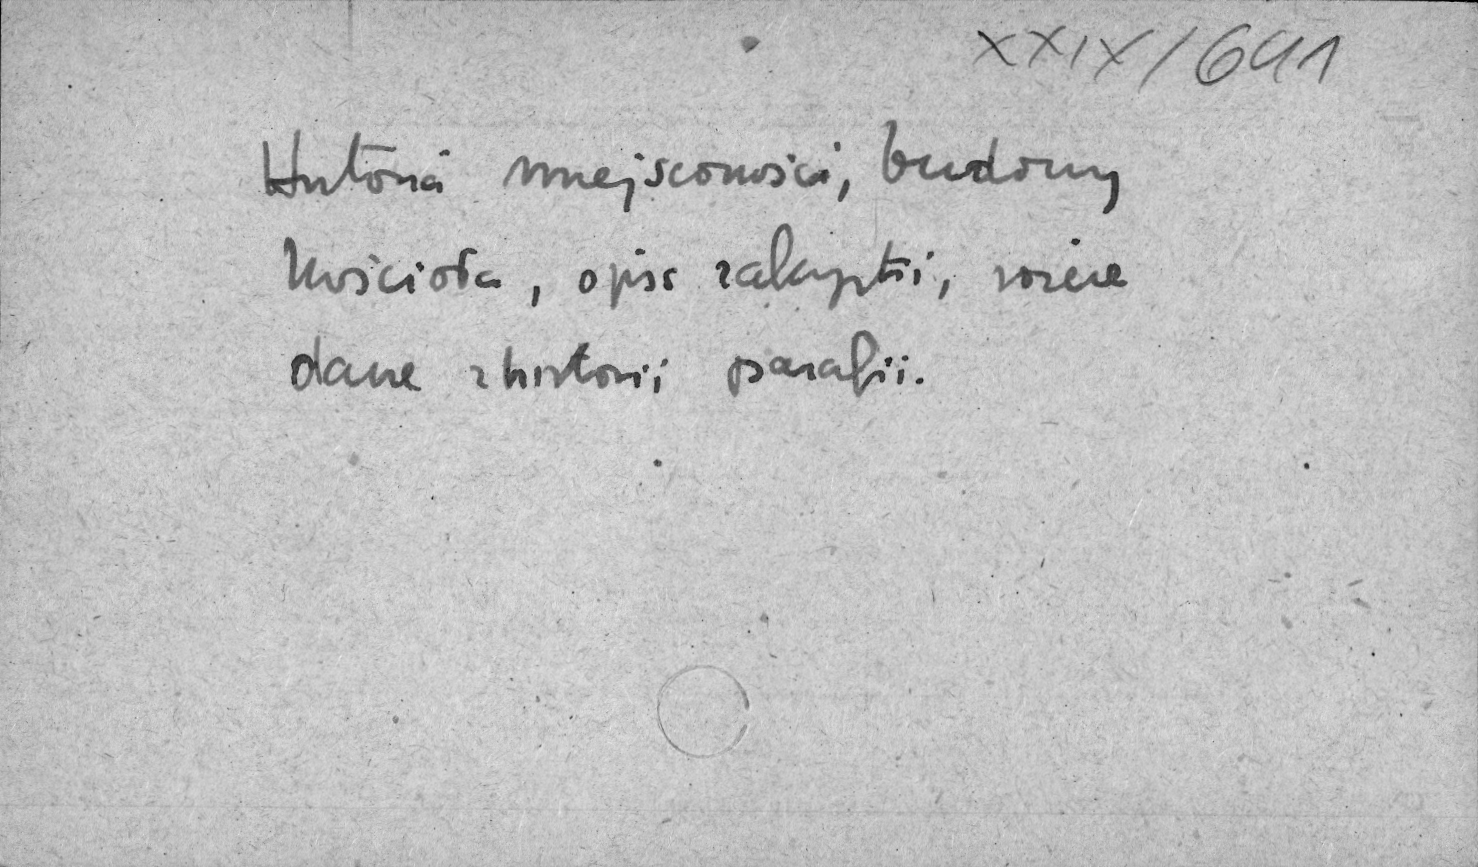 XXIX/641
Historia miejscowości, budowy
kościoła, opis zakrystii, różne
dane z historii parafii.